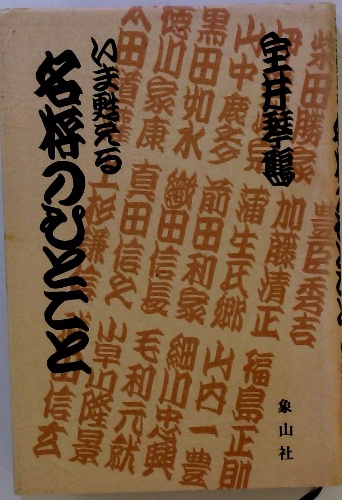 宝井琴鶴
いま甦える
名将のひとこと
柴田勝家
豊臣秀吉
加藤清正
福島正則
山中鹿之介
蒲生氏郷
山内一豊
黒田如水
前田利家
細川忠興
徳川家康
織田信長
毛利元就
太田道灌
真田信之
小早川隆景
上杉謙信
武田信玄
象山社